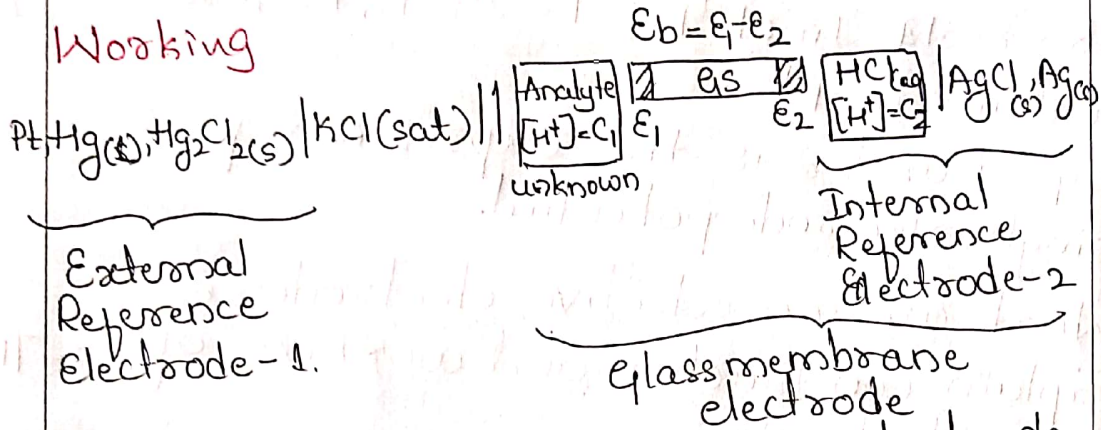 Working
Ɛb=Ɛ₁-Ɛ₂
Pt,Hg(l),Hg₂Cl₂(s)|KCl(sat)|| Analyte [H⁺]=C₁ Ɛ₁ GS Ɛ₂ HCl(aq) [H⁺]=C₂ |AgCl(s),Ag(s)
unknown
External
Reference
Electrode-1.
Internal
Reference
Electrode-2
Glass membrane
electrode